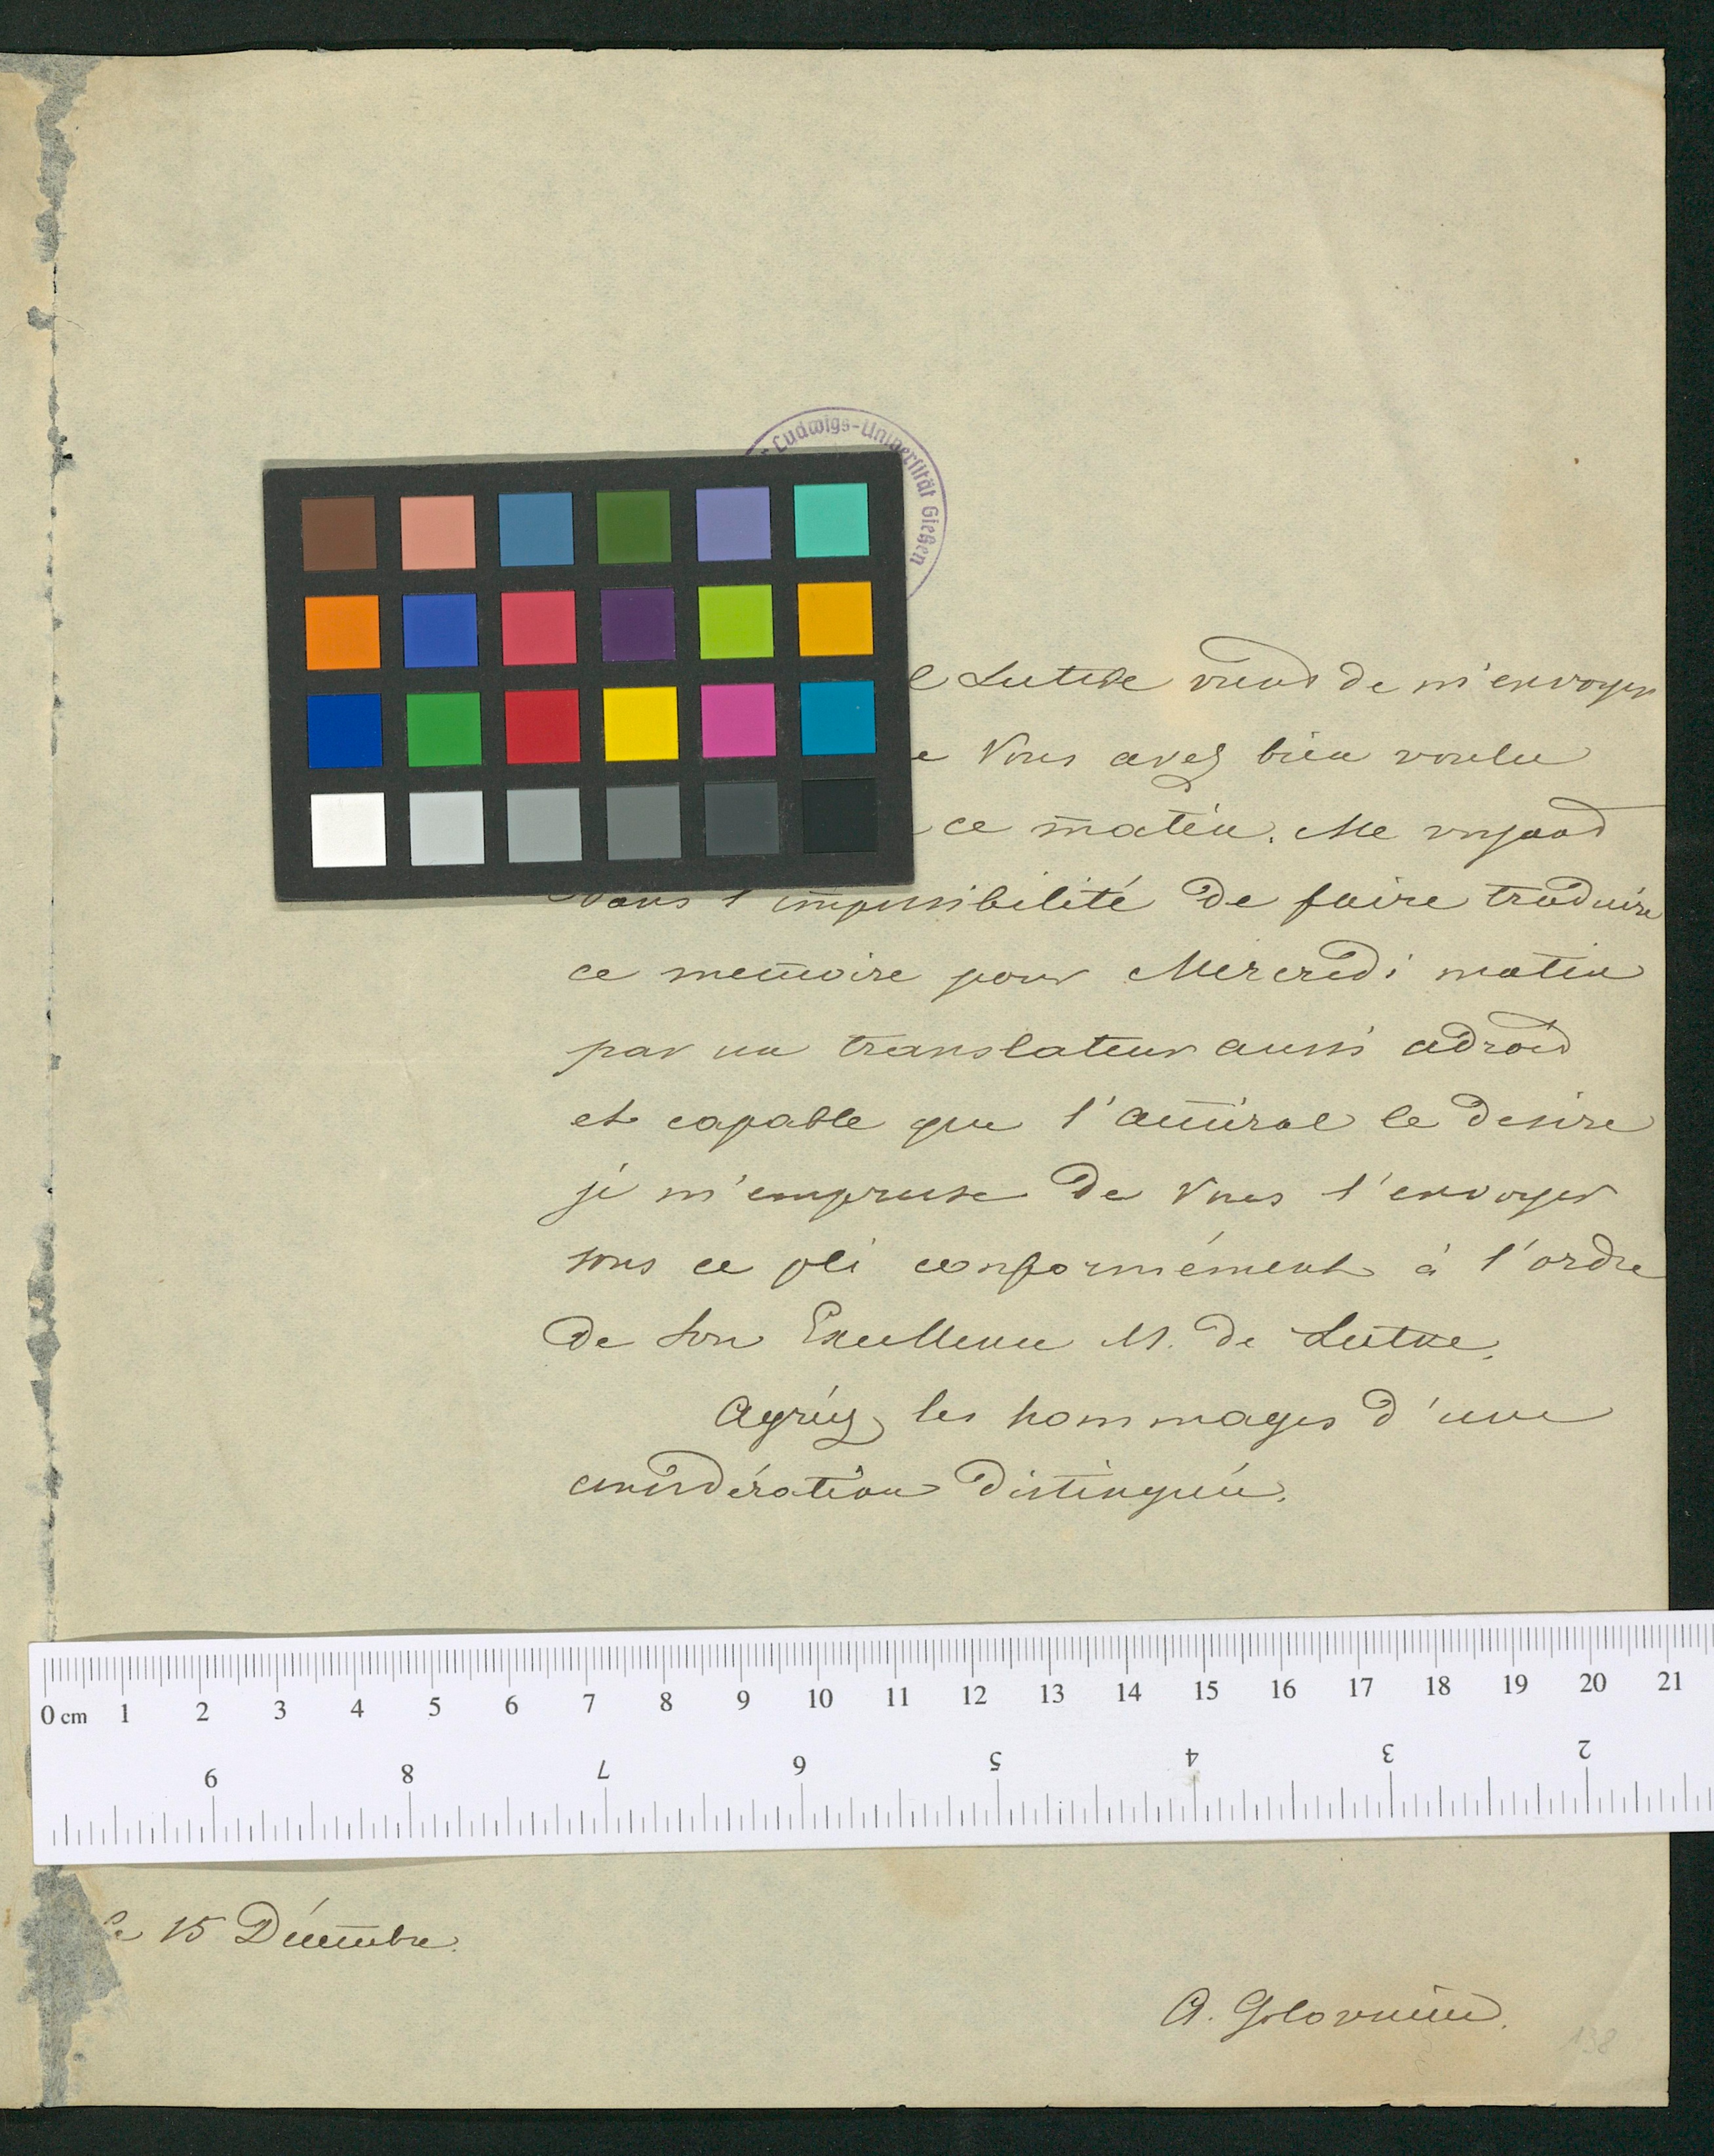 Ludwigs-Universität Gießen
Lutke vient de m'envoyer
Vous avez bien voulu
ce matin. Me voyant
Dans l'impossibilité de faire traduire
ce memoire pour Mercredi matin
par un translateur aussi adroit
et capable que l'amiral le desire
je m'empresse de Vous l'envoyer
sous ce pli conformément à l'ordre
de Son Excellence M. de Lutke.
Agréez les hommages d'une
considération distinguée.
0 cm 1 2 3 4 5 6 7 8 9 10 11 12 13 14 15 16 17 18 19 20 21
9 8 7 6 5 4 3 2
le 15 Décembre.
A. Golovnine.
138